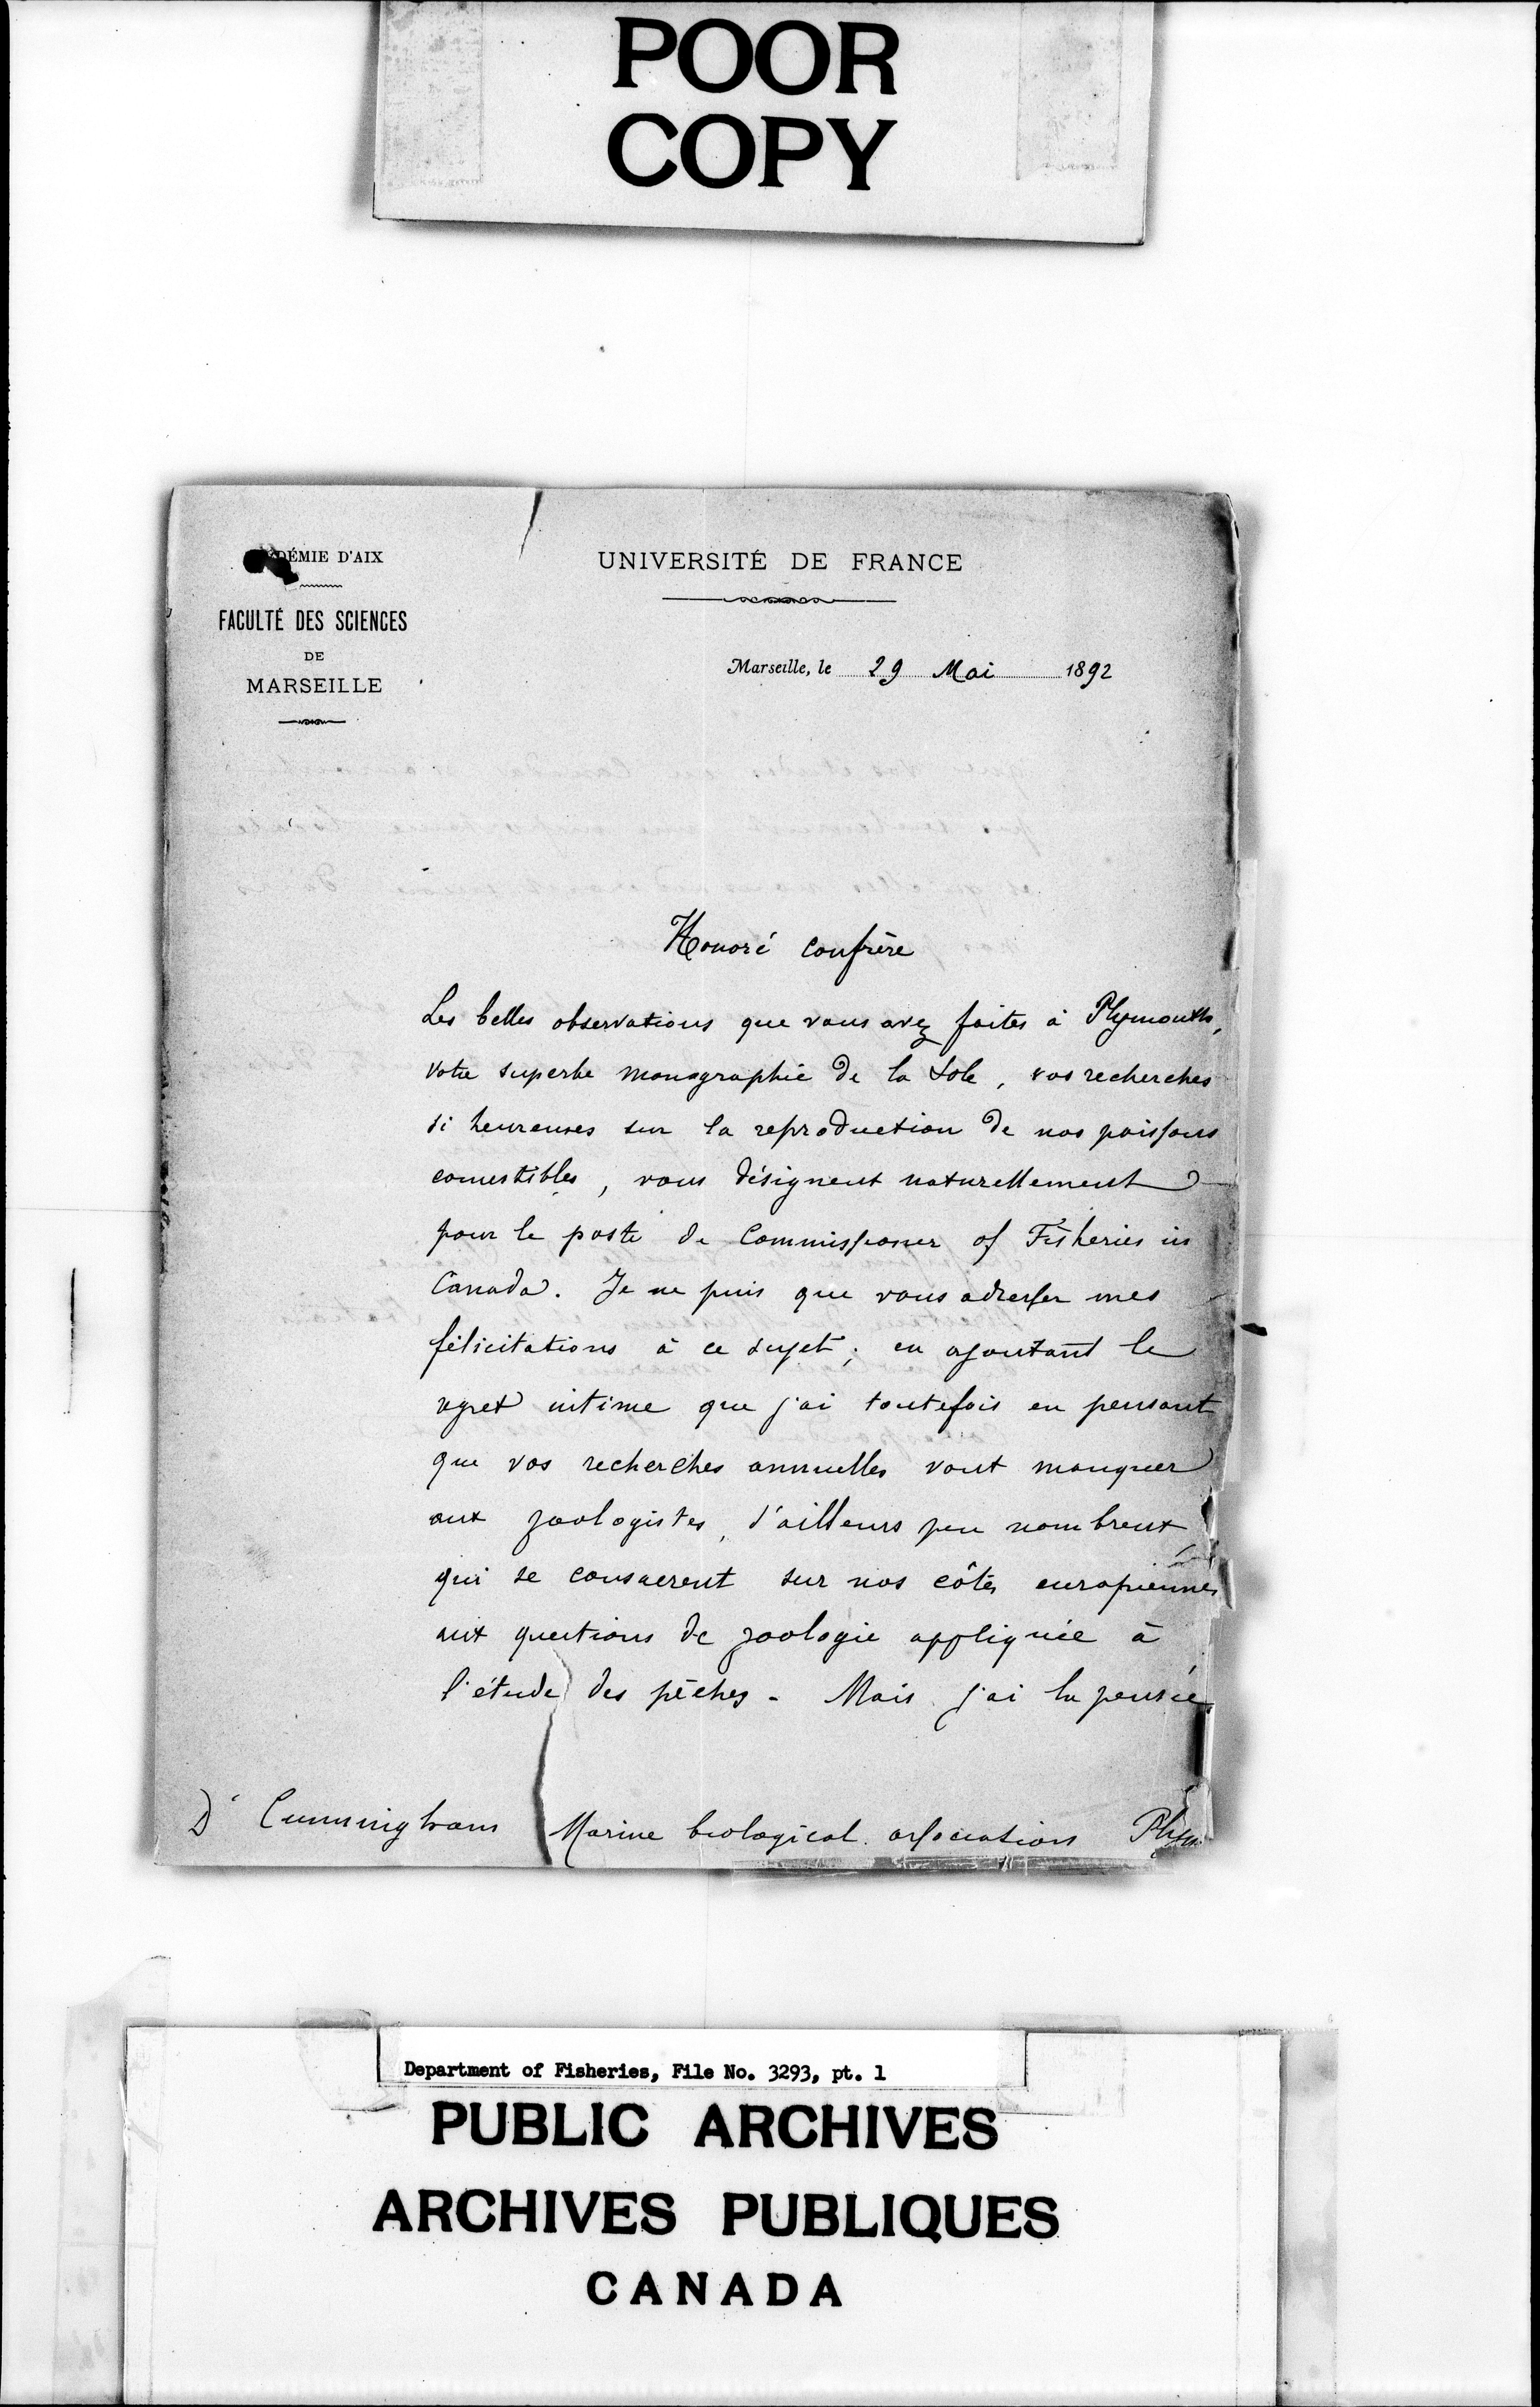 POOR
COPY
ADÉMIE D'AIX
FACULTÉ DES SCIENCES
DE
MARSEILLE
UNIVERSITÉ DE FRANCE
Marseille, le 29 Mai 1892
Honoré confrère
Les belles observations que vous avez faites à Plymouth,
votre superbe monographie de la Sole, vos recherches
si heureuses sur la reproduction de nos poissons
comestibles, vous désignent naturellement
pour le poste de Commissioner of Fisheries in
Canada. Je ne puis que vous adresser mes
félicitations à ce sujet; en ajoutant le
regret intime que j'ai toutefois en pensant
que vos recherches annuelles vont manquer
aux zoologistes, d'ailleurs peu nombreux
qui se consacrent sur nos côtes européennes
aux questions de zoologie appliquée à
l'étude des pêches. Mais j'ai la pensée
Dr Cunningham Marine biological association Plym
Department of Fisheries, File No. 3293, pt. 1
PUBLIC ARCHIVES
ARCHIVES PUBLIQUES
CANADA